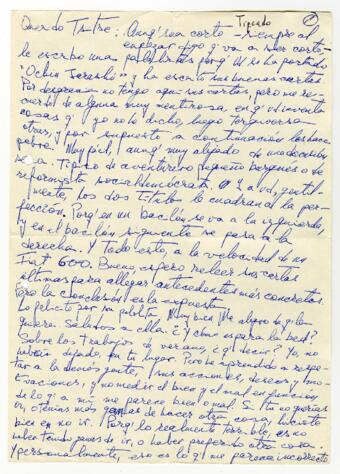 Tipeado
Querido Titre: Aunq' sea corto - siempre al
empezar digo q' va a ser corto -
le escribo unas palabritas porq' Ud. se ha portado
y ha escrito sus buenas cartas.
Por desgracia no tengo aquí sus cartas, pero me re-
cuerdo de alguna muy mentirosa, en q' Ud. inventa
cosas q' yo no le he dicho, luego tergiversa
otras, y por supuesto a continuación las hace
pebre. Muy fácil, aunq' muy alejado de una decente
Típico de aventurero pequeño burgués o de
reformista socialdemócrata. A Ud., gentil-
mente, los dos títulos le cuadran a la per-
fección. Porq' en un bache se va a la izquierda,
y en el bache siguiente se pasa a la
derecha. Y todo esto, a la velocidad de un
Fiat 600. Bueno, espero releer sus cartas
últimas para allegar antecedentes más concretos.
Pero la conclusión es la expuesta.
Lo felicito por su polola. Muy bien. Me alegro q' la
quiera. Saludos a ella. ¿Y cómo es para la
Sobre los trabajos de verano, ¿q' decir? Yo, no
habría dejado, en tu lugar. Pero he aprendido a respe-
tar a la demás gente, sus acciones, deseos y mo-
tivaciones, y no medir el bien y el mal en función
de lo q' a mí me parece bien o mal. Si tú no querías
ir, o tenías más ganas de hacer otra cosa, hiciste
bien en no ir. Porq' lo realmente terrible, es no
haber tenido ganas de ir, o haber preferido otra cosa.
Y personalmente, eso es lo q' me parece incorrecto